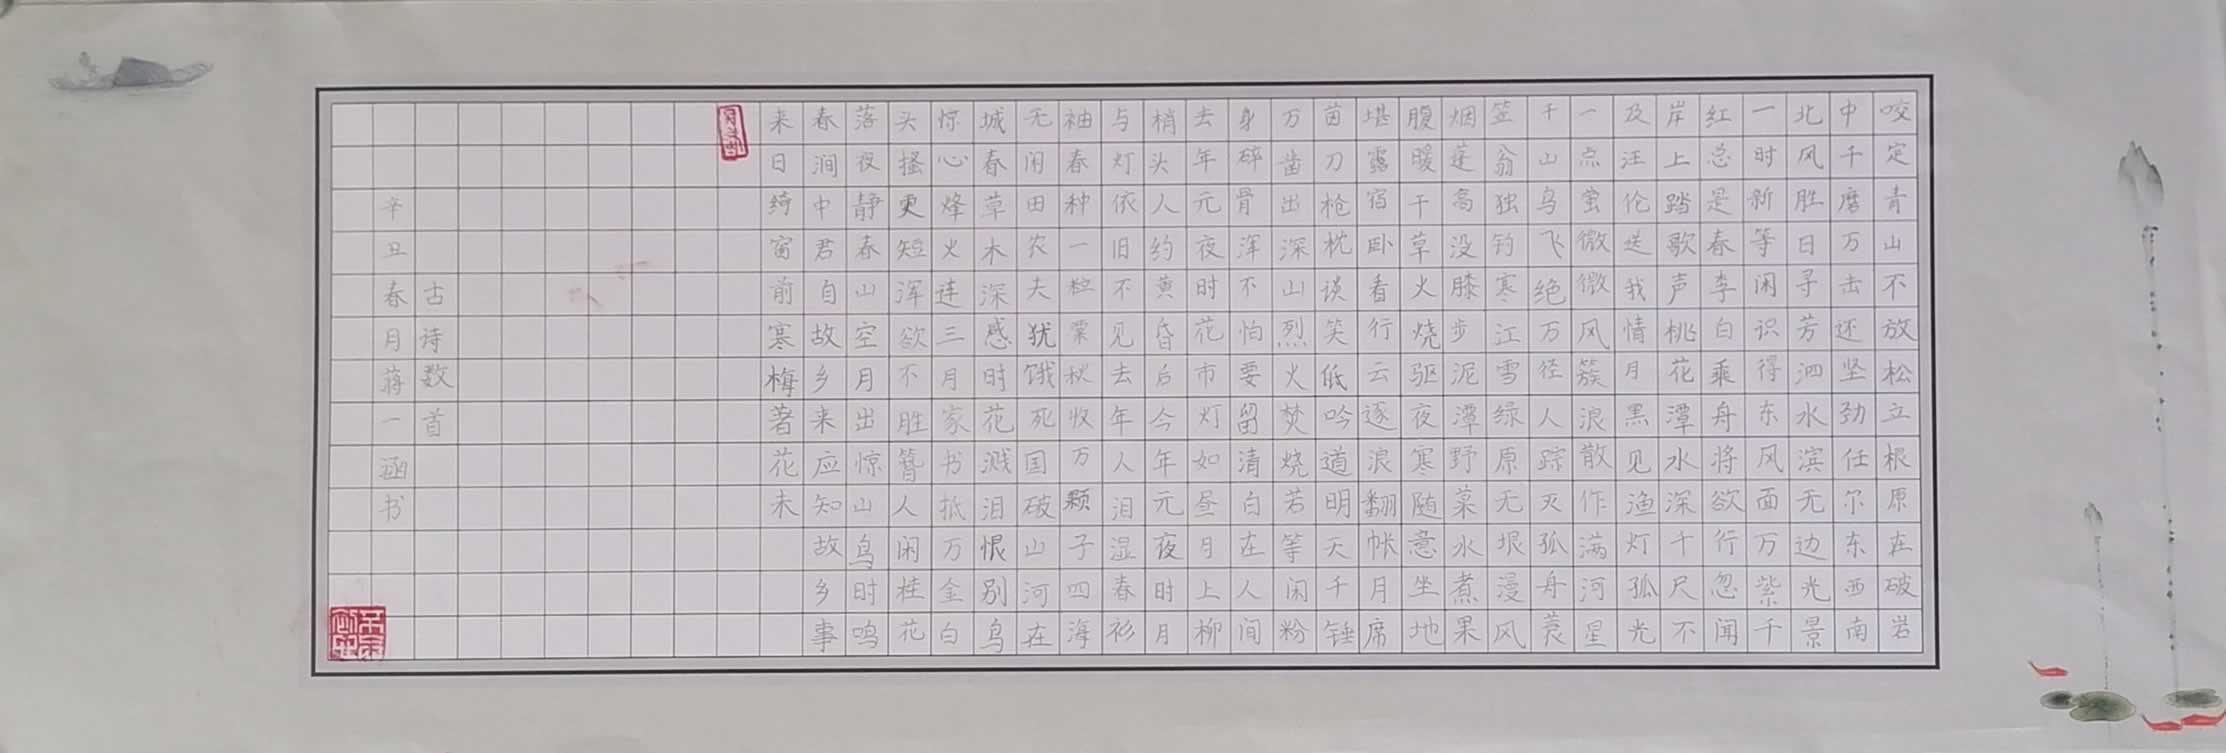 咬定青山不放松立根原在破岩
中千磨万击还坚劲任尔东西南
北风胜日寻芳泗水滨无边光景
一时新等闲识得东风面万紫千
红总是春李白乘舟将欲行忽闻
岸上踏歌声桃花潭水深千尺不
及汪伦送我情月黑见渔灯孤光
一点萤微微风簇浪散作满河星
千山鸟飞绝万径人踪灭孤舟蓑
笠翁独钓寒江雪绿原无垠漫风
烟蓬高没膝步泥潭野菜水煮果
腹暖干草火烧驱夜寒随意坐地
堪露宿卧看行云逐浪翻帐月席
茵刀枪枕谈笑低吟道明天千锤
万凿出深山烈火焚烧若等闲粉
身碎骨浑不怕要留清白在人间
去年元夜时花市灯如昼月上柳
梢头人约黄昏后今年元夜时月
与灯依旧不见去年人泪湿春衫
袖春种一粒粟秋收万颗子四海
无闲田农夫犹饿死国破山河在
城春草木深感时花溅泪恨别鸟
惊心烽火连三月家书抵万金白
头搔更短浑欲不胜簪人闲桂花
落夜静春山空月出惊山鸟时鸣
春涧中君自故乡来应知故乡事
来日绮窗前寒梅著花未
古诗数首
辛丑春月蒋一涵书